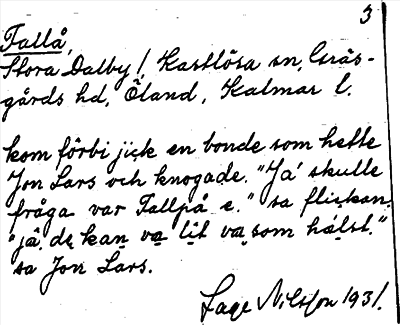 3
Fallå,
Stora Dalby, Kastlösa sn, Gräs-
gårds hd, Öland, Kalmar l.
kom förbi jick en bonde som hette
Jon Lars och knogade. "Ja skulle
fråga var Fallpå e." sa flickan.
"jâ, de kan va lit va som hälst."
sa Jon Lars.
Lage Nilsson 1931.